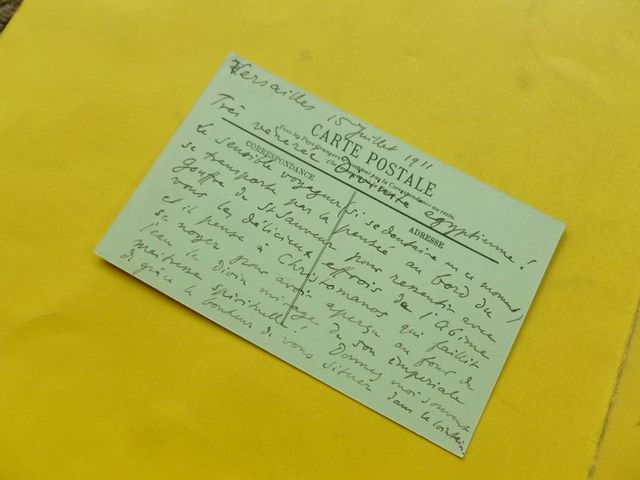 Versailles 15 Juillet 1911
Très vénérée égyptienne !
CARTE POSTALE
CORRESPONDANCE
ADRESSE
Le sensible voyageur (si sédentaire en ce moment)
se transporte par la pensée au bord du
gouffre de St Sauveur pour ressentir avec
vous les délicieux effrois de l'Abîme
et il pense à Christomanos qui faillit
se noyer pour avoir aperçu au fond de
l'eau le divin mirage de son impériale
maîtresse spirituelle ! Donnez moi souvent
de grâce le bonheur de vous situer dans le lointain